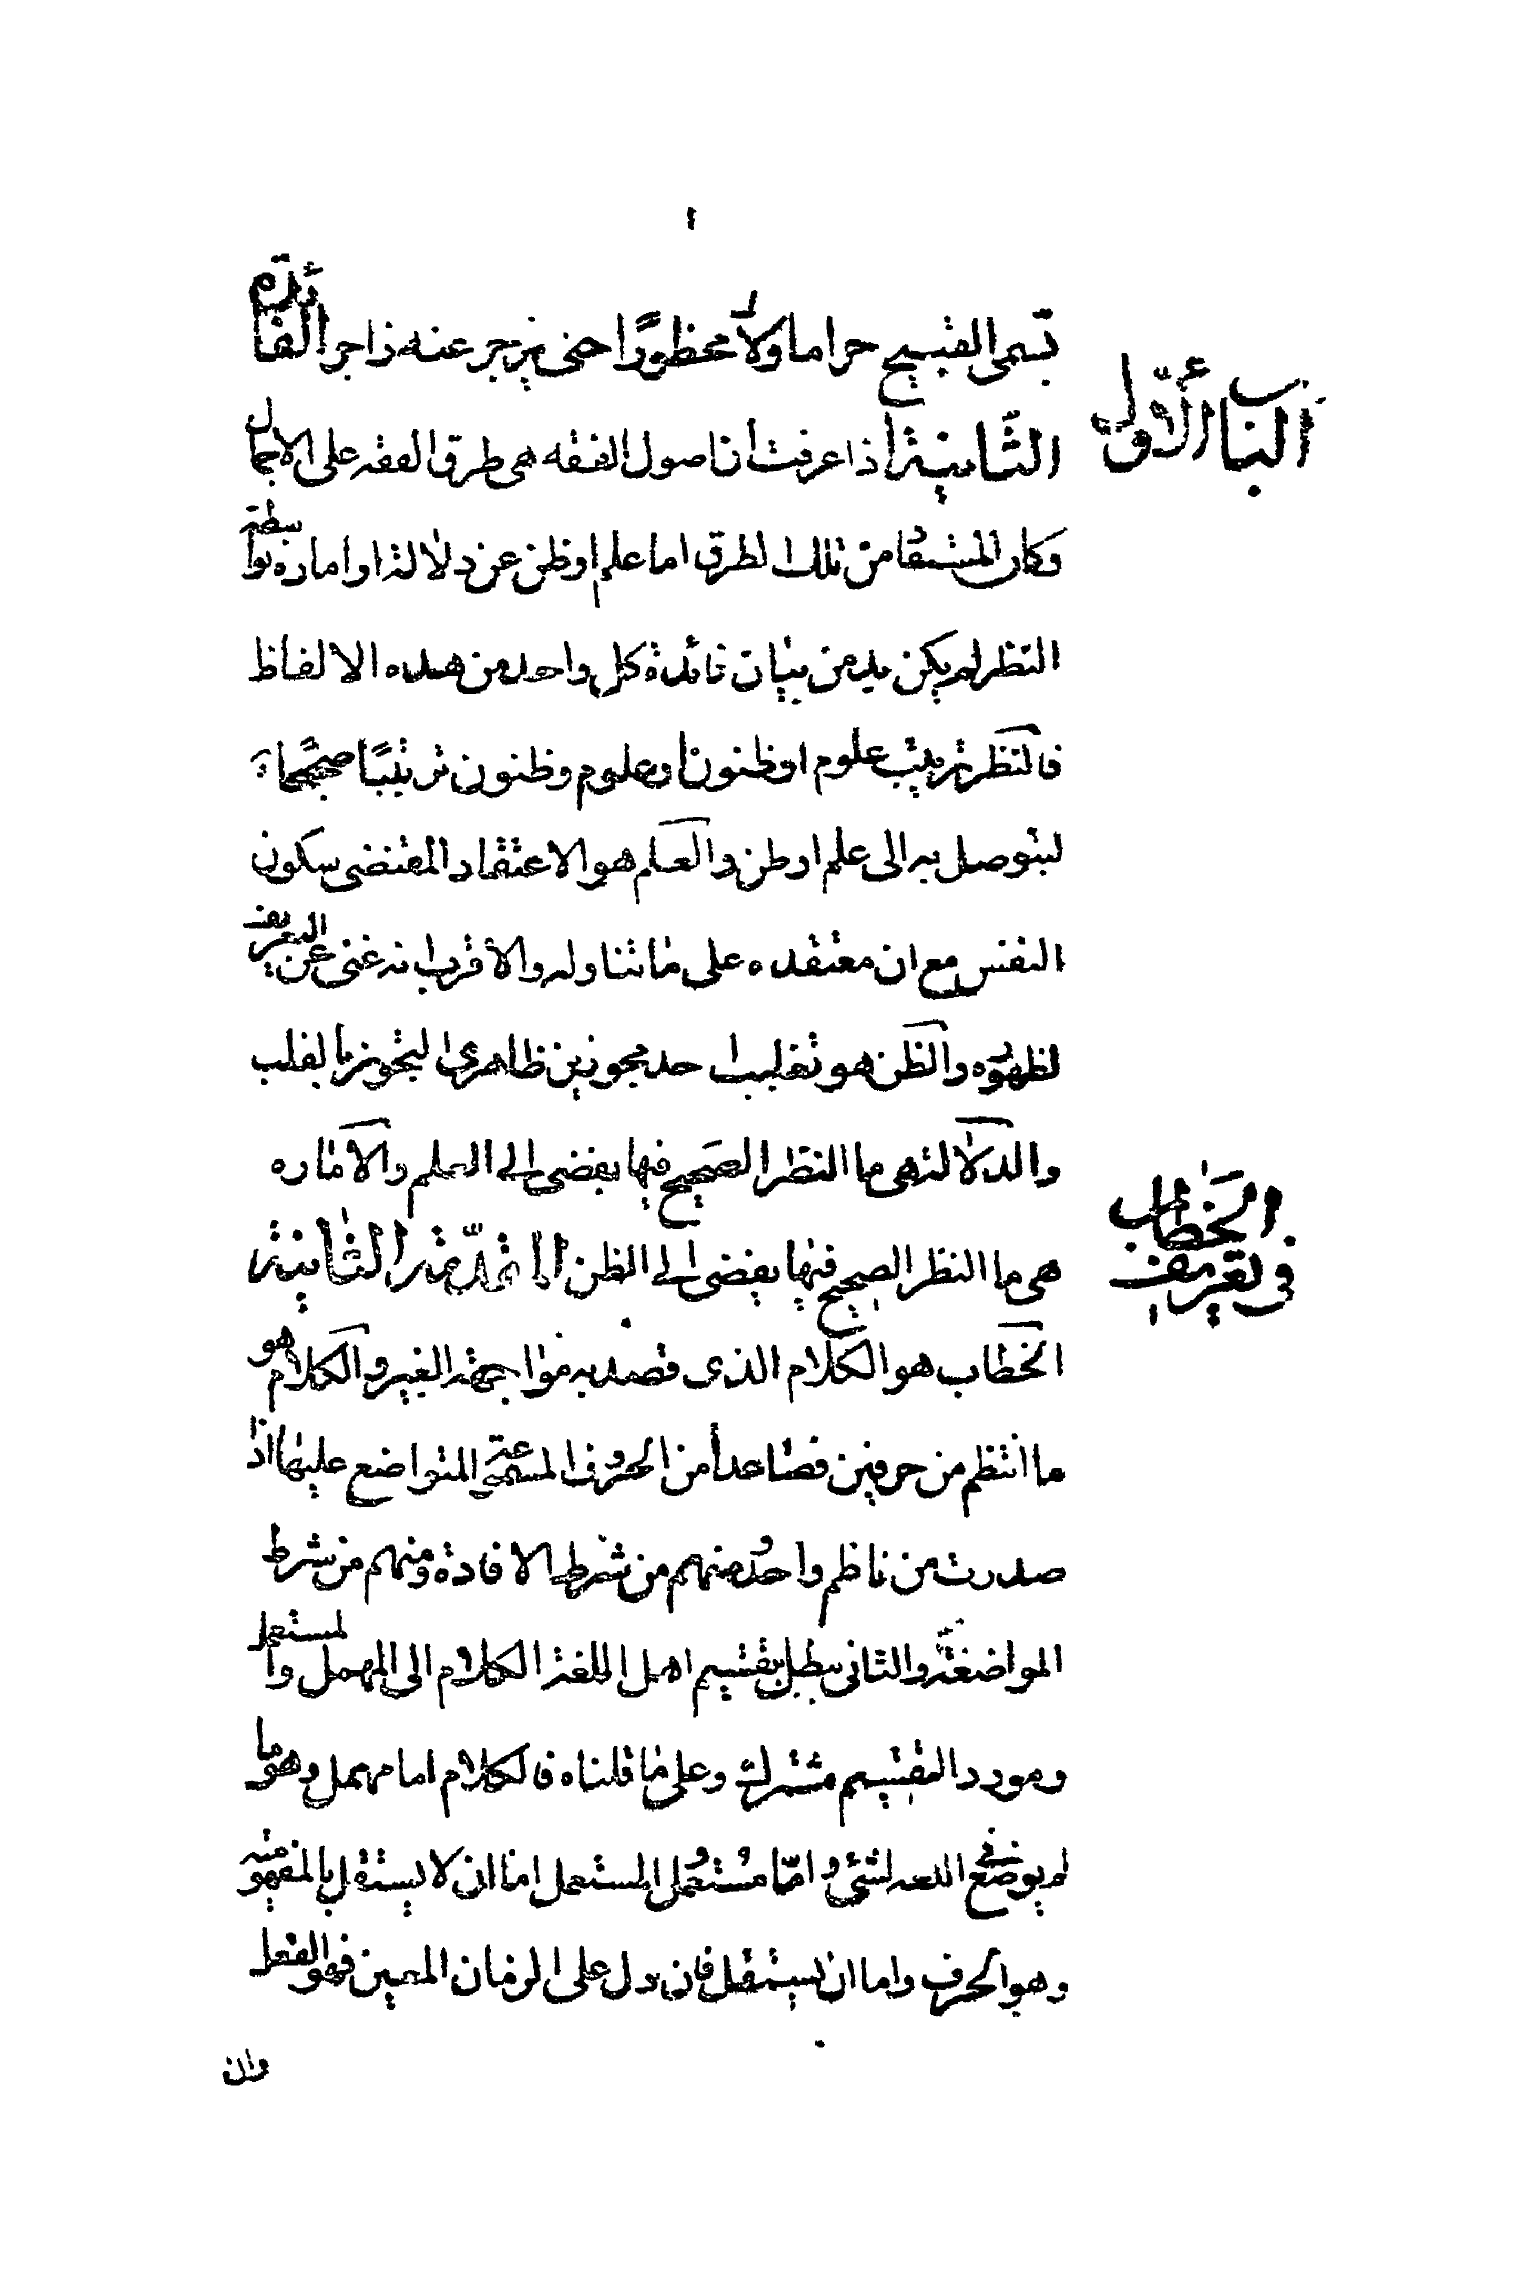 يسمى القبيح حراما ولا محظورًا حتى يزجر عنه زاجر الفائدة
الباب الأول
الثانية اذا عرفت ان اصول الفقه هى طرق الفقه على الاجمال
وكان المستفاد من تلك الطرق اما علم او ظن عن دلالة او امارة بواسطة
النظر لم يكن بد من بيان فائدة كل واحد من هذه الالفاظ
فالنظر ترتيب علوم او ظنون او علوم وظنون ترتيبًا صحيحًا
ليتوصل به الى علم او ظن والعلم هو الاعتقاد المقتضى سكون
النفس مع ان معتقده على ما تناوله والاقرب انه غنى عن التعريف
لظهوره والظن هو تغليب احد مجوزين ظاهرى التجويز بالقلب
والدلالة هى ما النظر الصحيح فيها يفضى الى العلم والامارة
هى ما النظر الصحيح فيها يفضى الى الظن المقدّمة الثانية
فى تعريف الخطاب
الخطاب هو الكلام الذى قصد به مواجهة الغير والكلام هو
ما انتظم من حرفين فصاعدا من الحروف المسموعة المتواضع عليها اذا
صدرت من ناظم واحد ومنهم من شرط الافادة ومنهم من شرط
المواضعة والثانى يبطل بتقسيم اهل اللغة الكلام الى المهمل والمستعمل
ومورد التقسيم مشترك وعلى ما قلناه فالكلام اما مهمل وهو ما
لم يوضع فى اللغه لشئ وامّا مستعمل المستعمل اما ان لا يستقل بالمفهومية
وهو الحرف واما ان يستقل فان دل على الزمان المعين فهو الفعل
وان